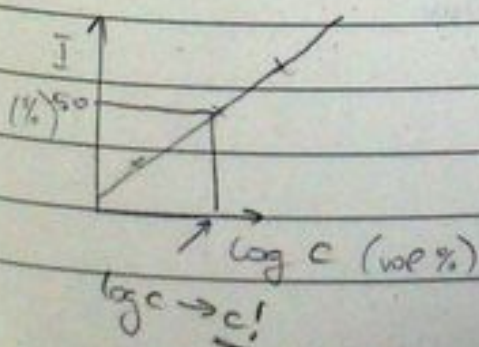 I
(%) 50
log c (vol %)
log c → c!